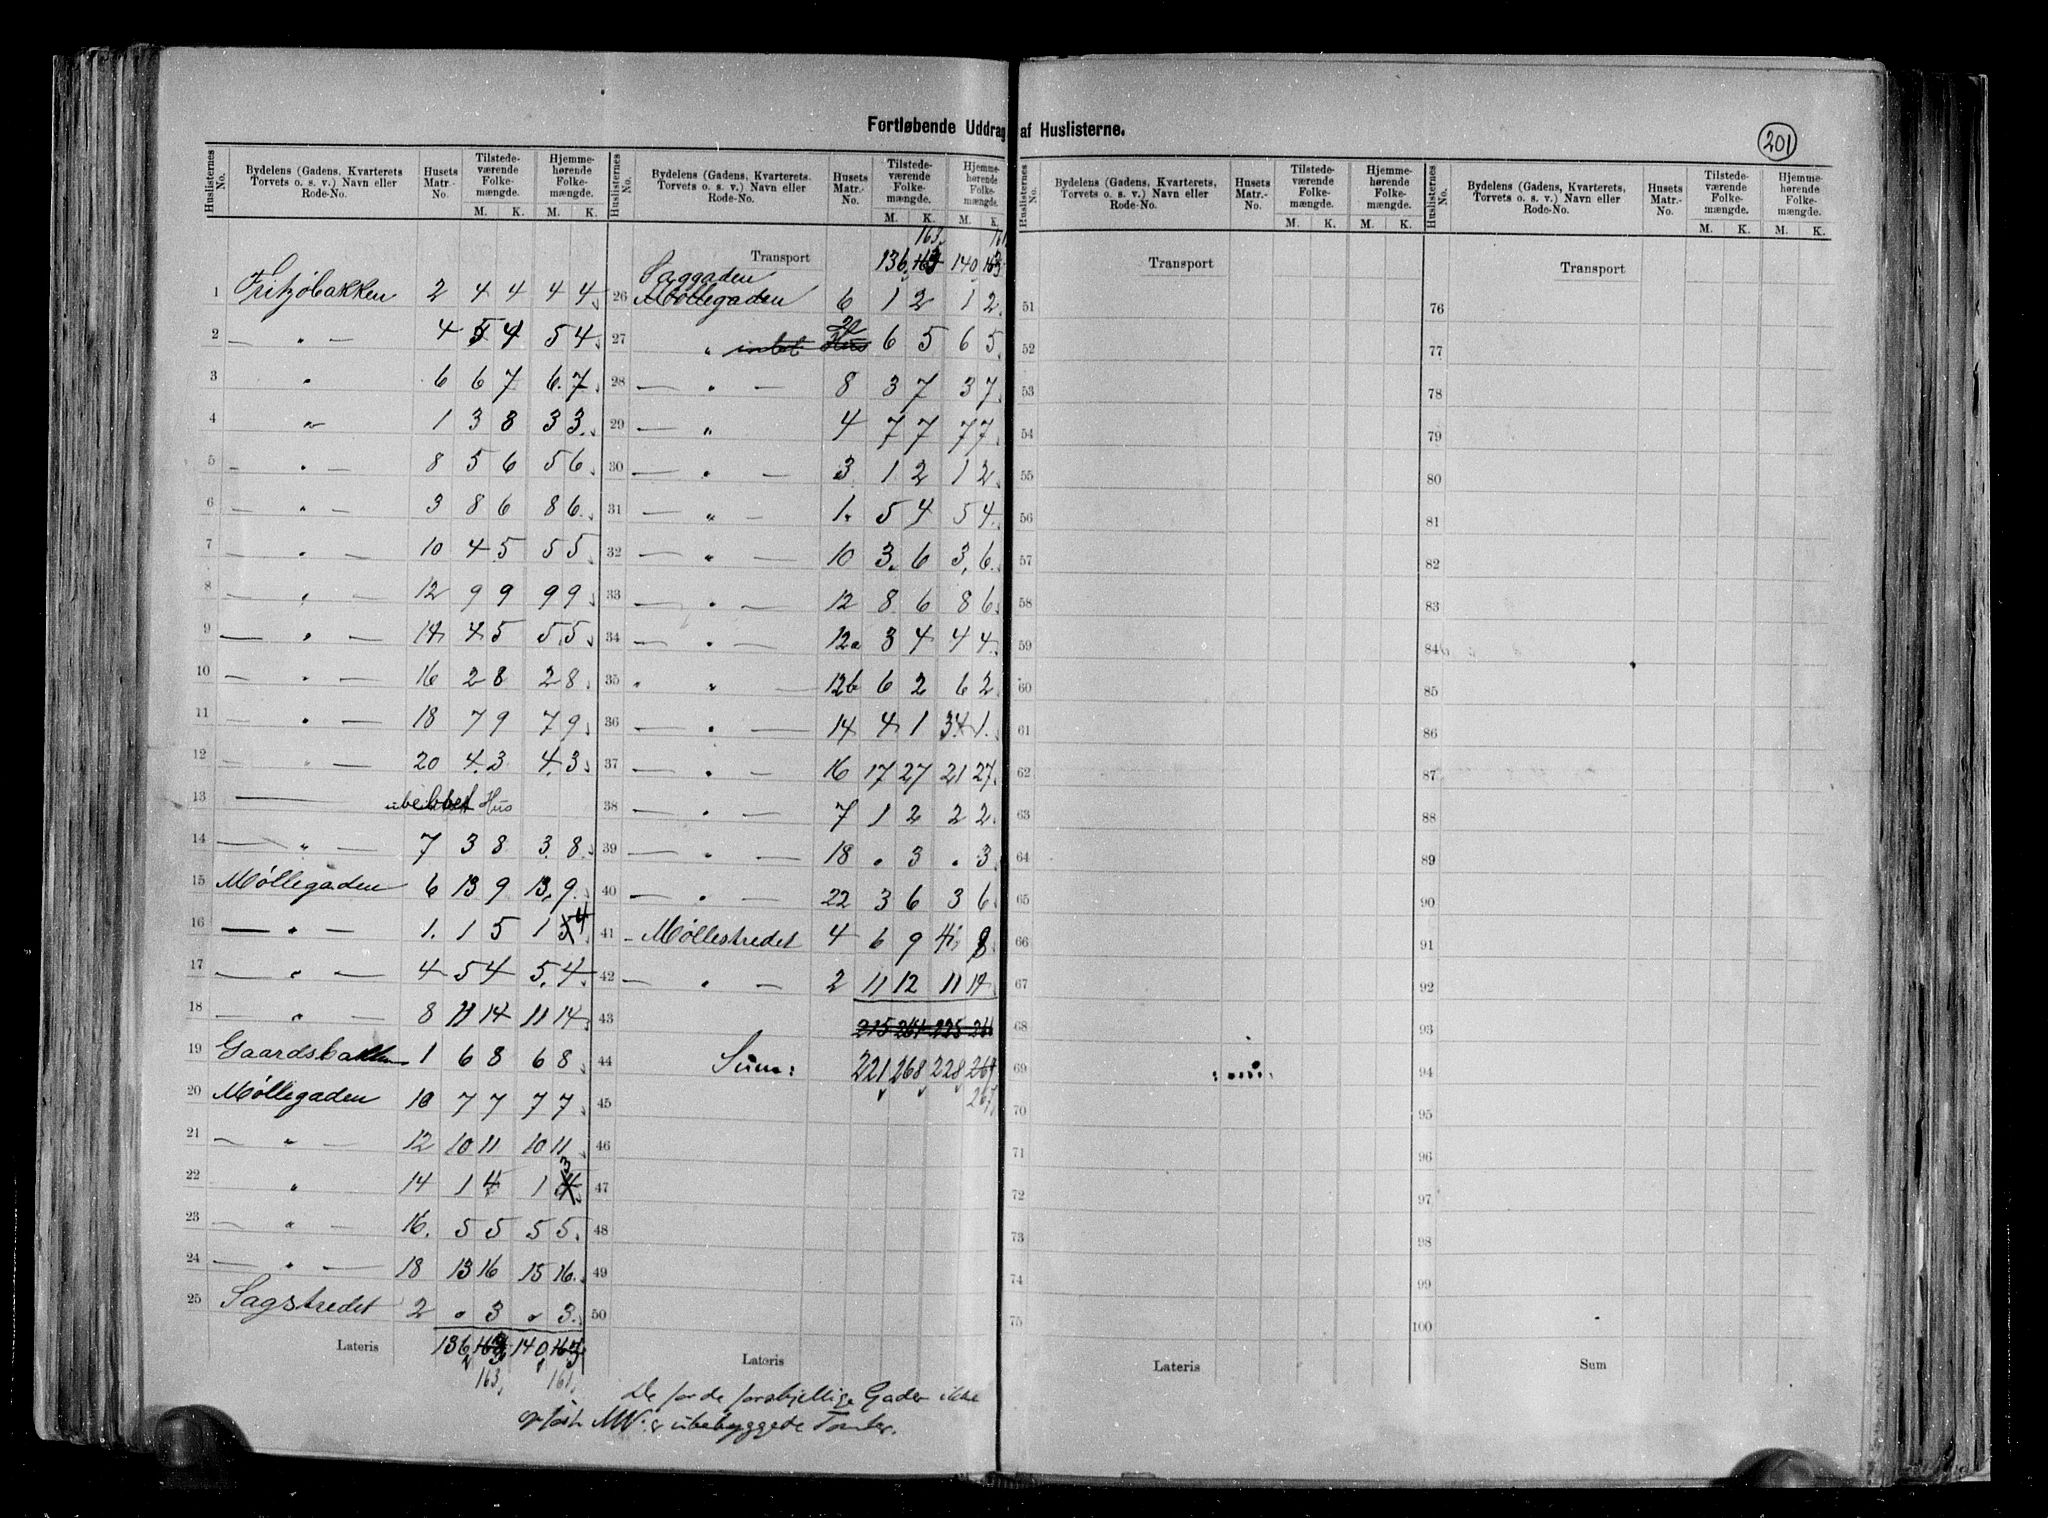 Fortløbende Uddrag af Huslisterne.
201
Huslisternes No. | Bydelens (Gadens, Kvarterets Torvets o. s. v.) Navn eller Rode-No. | Husets Matr.-No. | Tilstedeværende Folkemængde. M. K. | Hjemmehørende Folkemængde. M. K.
1 Fritzöbakken 2 4 4 4 4
2 — " — 4 5 4 5 4
3 " 6 6 7 6 7
4 " 1 3 3 3 3
5 — " — 8 5 6 5 6
6 — " — 3 8 6 8 6
7 — " — 10 4 5 5 5
8 — " — 12 9 9 9 9
9 — " — 14 4 5 5 5
10 — " — 16 2 8 2 8
11 — " — 18 7 9 7 9
12 — " — 20 4 3 4 3
13 — Hus
14 — " — 7 3 8 3 8
15 Møllegaden 6 13 9 13 9
16 — " — 1. 1 5 1 5 4
17 — " — 4 5 4 5 4
18 — " — 8 11 14 11 14
19 Gaardsbakken 1 6 8 6 8
20 Møllegaden 10 7 7 7 7
21 — " — 12 10 11 10 11
22 " 14 1 4 1 4 3
23 — " — 16. 5 5 5 5
24 — " — 18 13 16 15 16
25 Sagstredet 2 " 3 " 3
Lateris 136 163 140 163
163 161
Huslisternes No. | Bydelens (Gadens, Kvarterets. Torvets o. s. v.) Navn eller Rode-No. | Husets Matr.-No. | Tilstedeværende Folkemængde. M. K. | Hjemmehørende Folkemængde. M. K.
163 161
Transport 136 163 140 163
Saggaden
26 Møllegaden 6 1 2 1 2
27 " intet Hus 20 6 5 6 5
28 — " — 8 3 7 3 7
29 — " 4 7 7 7 7
30 — " — 3 1 2 1 2
31 — " — 1. 5 4 5 4
32 — " — 10 3 6 3 6
33 — " — 12 8 6 8 6
34 — " — 12a 3 4 4 4
35 " " — 12b 6 2 6 2
36 — " — 14 4 1 3 4 1
37 — " — 16 17 27 21 27
38 — " — 7 1 2 2 2
39 — " — 18 " 3 " 3
40 — " — 22 3 6 3 6
41 Møllestredet 4 6 9 4 8
42 — " — 2 11 12 11 14
43 215 261 225 261
44 Sum: 221 268 228 267
45 267
46
47
48
49
50
Lateris
De for de forskjellige Gader ikke
opførte MN. er ubebyggede Tomter.
Huslisternes No. | Bydelens (Gadens, Kvarterets, Torvets o. s. v.) Navn eller Rode-No. | Husets Matr.-No. | Tilstedeværende Folkemængde. M. K. | Hjemmehørende Folkemængde. M. K.
Transport
51
52
53
54
55
56
57
58
59
60
61
62
63
64
65
66
67
68
69
70
71
72
73
74
75
Lateris
Huslisternes No. | Bydelens (Gadens, Kvarterets, Torvets o. s. v.) Navn eller Rode-No. | Husets Matr.-No. | Tilstedeværende Folkemængde. M. K. | Hjemmehørende Folkemængde. M. K.
Transport
76
77
78
79
80
81
82
83
84
85
86
87
88
89
90
91
92
93
94
95
96
97
98
99
100
Sum